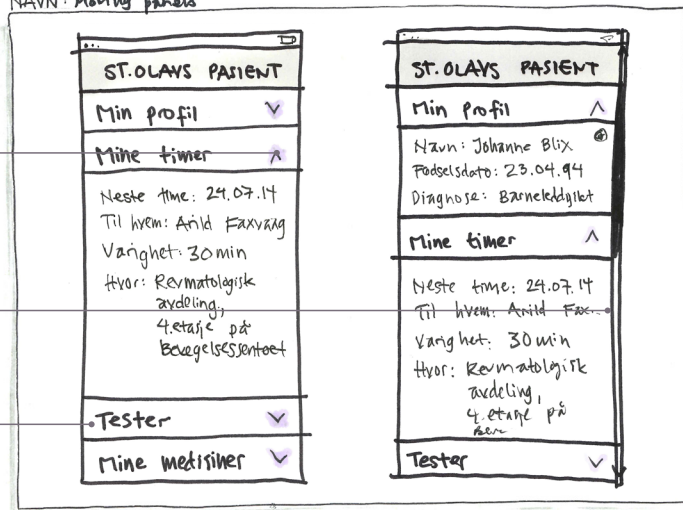 NAVN: Moving panels
ST. OLAVS PASIENT
Min profil
Mine timer
Neste time: 24.07.14
Til hvem: Arild Faxvaag
Varighet: 30 min
Hvor: Revmatologisk
avdeling,
4.etasje på
Bevegelsessenteret
Tester
Mine medisiner
ST. OLAVS PASIENT
Min profil
Navn: Johanne Blix
Fødselsdato: 23.04.94
Diagnose: Barneleddgikt
Mine timer
Neste time: 24.07.14
Til hvem: Arild Fax...
Varighet: 30 min
Hvor: Revmatologisk
avdeling,
4.etasje på
Bev
Tester